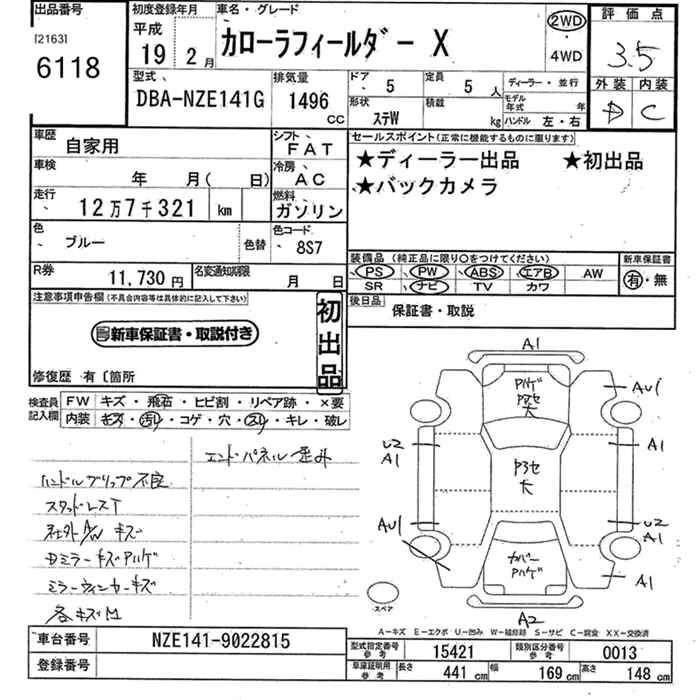 出品番号
[2163]
6118
初度登録年月
平成
19 2月
車名・グレード
カローラフィールダー X
2WD
・
4WD
評価点
3.5
外装 内装
D C
型式
DBA-NZE141G
排気量
1496
CC
ドア
5
定員
5人
ディーラー・並行
形状
ステW
積載
kg
モデル年式 年
ハンドル 左・右
車歴
自家用
シフト
FAT
車検
年 月( 日)
冷房
AC
走行
12万7千321 km
燃料
ガソリン
色
ブルー
色替
色コード
8S7
R券
11,730円
名変通知期限
月 日
セールスポイント(正常に機能するものに限ります)
★ディーラー出品 ★初出品
★バックカメラ
装備品 (純正品に限り○をつけてください)
PS PW ABS エアB AW
SR ナビ TV カワ
新車保証書
有・無
後日品
保証書・取説
注意事項申告欄(不具合内容等は具体的に記入して下さい)
新車保証書・取説付き
初出品
修復歴 有〔箇所
検査員記入欄
FW キズ・飛石・ヒビ割・リペア跡・×要
内装 キズ・汚れ・コゲ・穴・スレ・キレ・破レ
エンドパネル歪み
ハンドルグリップ不良
スタッドレスT
社外AW キズ
Dミラーキズハゲ
ミラーウィンカーキズ
各キズM
A1
AU1
U2
A1
A1
AU1
U2
A1
A1
A2
スペア
A-キズ E-エクボ U-凹み W-補修跡 S-サビ C-腐食 XX-交換済
車台番号
NZE141-9022815
登録番号
型式指定番号
参考
15421
類別区分番号
参考
0013
車庫証明用
参考
長さ
441 cm
幅
169 cm
高さ
148 cm